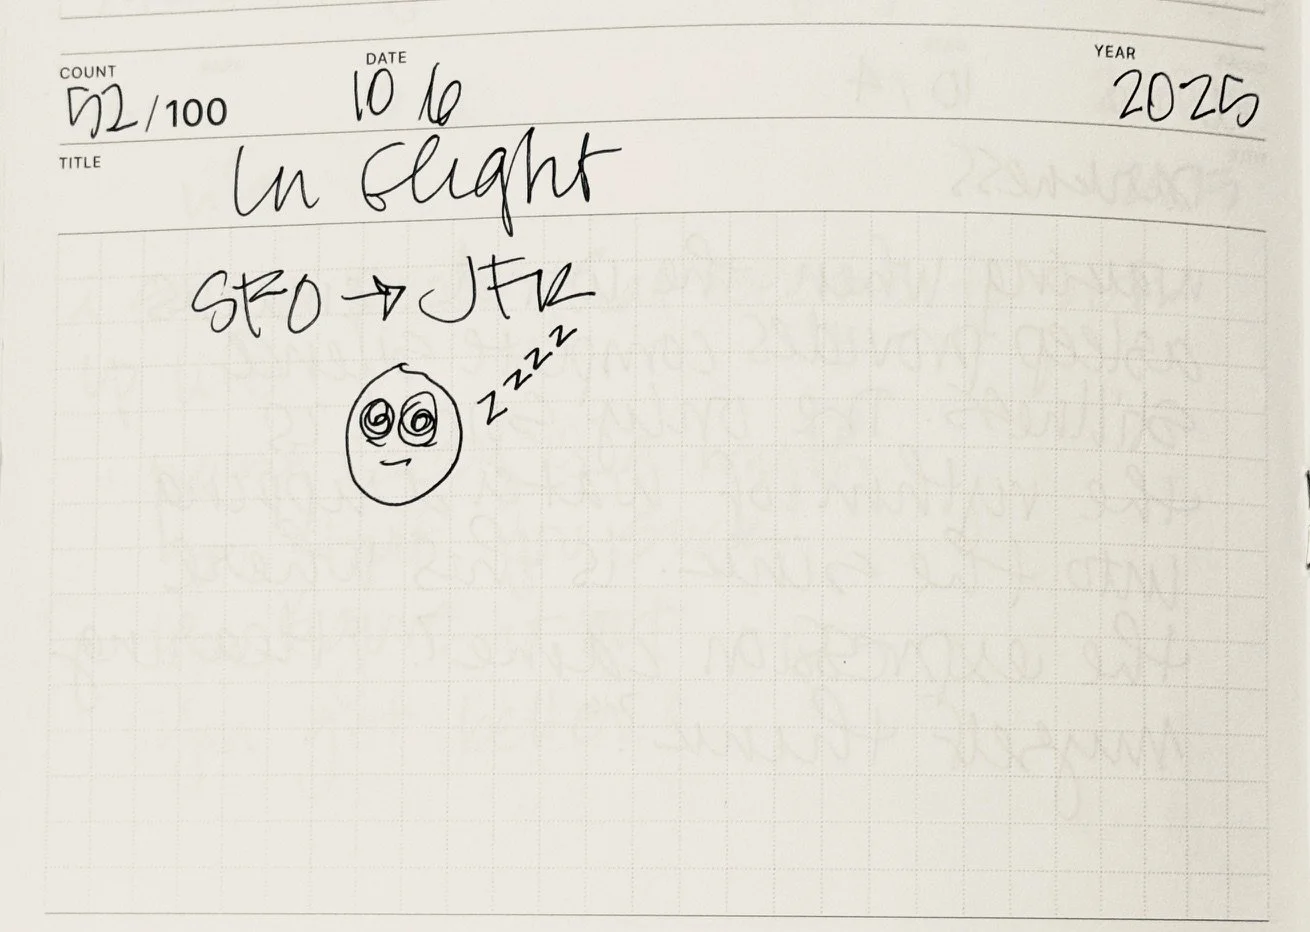 COUNT DATE YEAR
52/100 10 6 2025
TITLE In Flight
SFO → JFK
z z z z z